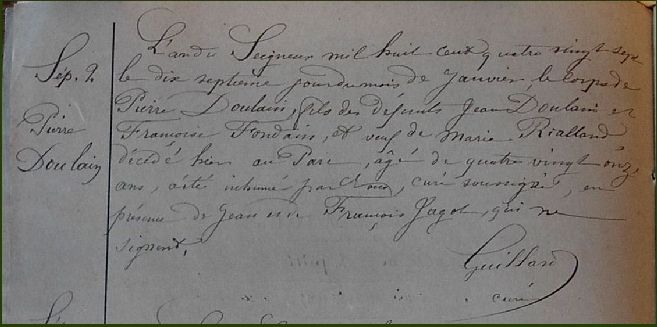 Sép. 2
Pierre
Doulain
L'an du Seigneur mil huit cent quatre vingt sept
le dix septième jour du mois de Janvier, le corps de
Pierre Doulain, fils des défunts Jean Doulain et
Françoise Fondain, et veuf de Marie Rialland
décédé hier au Parc, âgé de quatre vingt onze
ans, a été inhumé par nous, curé soussigné, en
présence de Jean et de François Jagot, qui ne
signent.
Guillard
curé